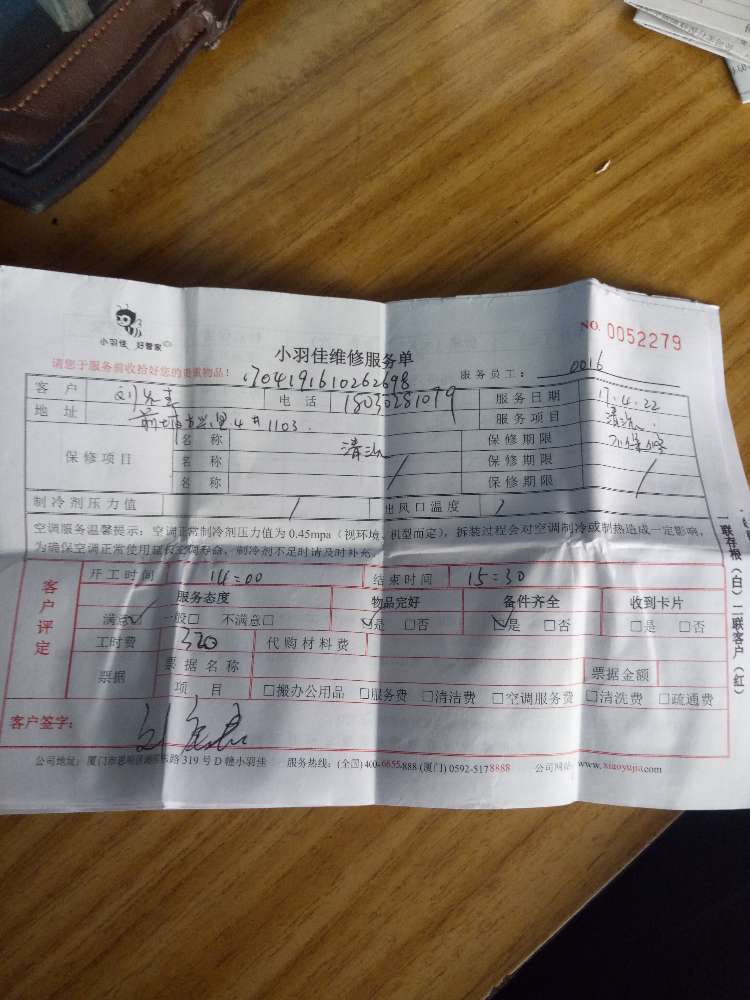 小羽佳 好管家
小羽佳维修服务单
NO. 0052279
请您于服务前收拾好您的贵重物品!
1704191610262698
服务员工: 0016
客户 电话 18030281079 服务日期 17.4.22
地址 4#1103. 服务项目 清洗.
保修项目 名称 清洗 保修期限 不保修
名称 / 保修期限 /
名称 保修期限
制冷剂压力值 / 出风口温度 /
空调服务温馨提示: 空调正常制冷剂压力值为 0.45mpa (视环境、机型而定), 拆装过程会对空调制冷或制热造成一定影响,
为确保空调正常使用延长空调寿命, 制冷剂不足时请及时补充。
客户评定
开工时间 14:00 结束时间 15:30
服务态度 物品完好 备件齐全 收到卡片
满意☑ 一般□ 不满意□ ☑是 □否 ☑是 □否 □是 □否
工时费 320 代购材料费
票据 票据名称 票据金额
项目 □搬办公用品 □服务费 □清洁费 □空调服务费 □清洗费 □疏通费
客户签字:
公司地址: 厦门市思明区 路 319 号 D 幢小羽佳 服务热线: (全国) 400-6655-888 (厦门) 0592-5178888 公司网站: www.xiaoyujia.com
一联存根(白) 二联客户(红)